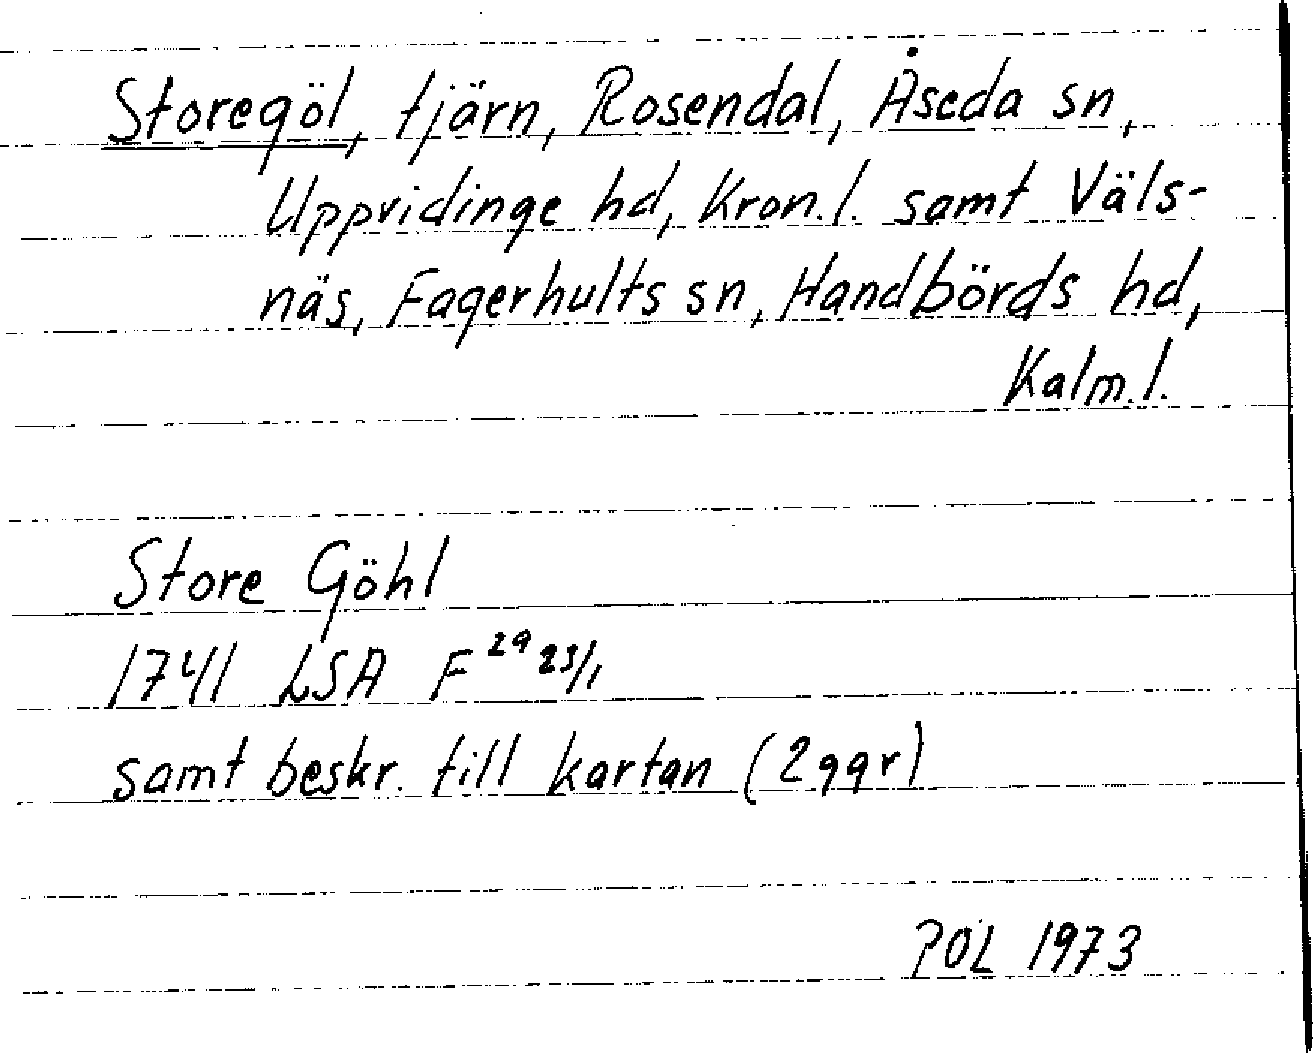 Storegöl, tjärn, Rosendal, Åseda sn,
Uppvidinge hd, Kron. l. samt Väls-
näs, Fagerhults sn, Handbörds hd,
Kalm. l.
Store Göhl
1741 LSA F 29 23/1
samt beskr. till kartan (2ggr)
POL 1973